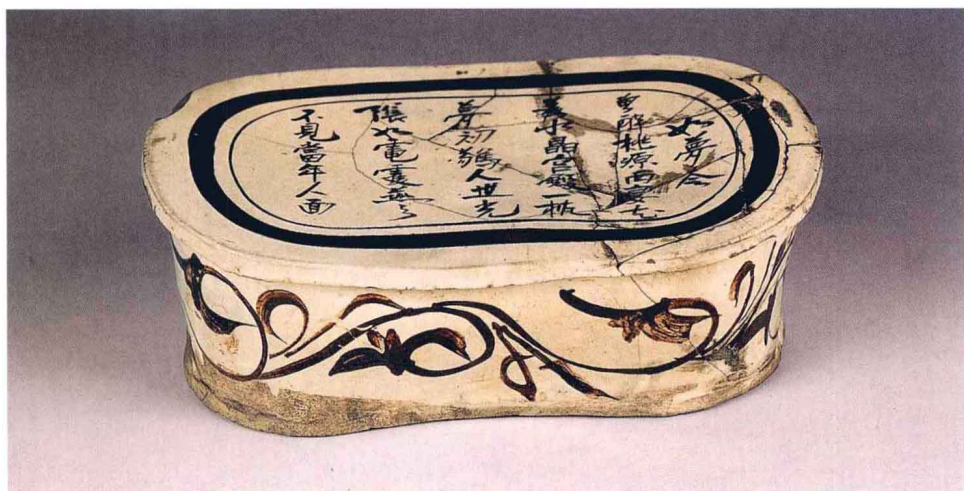 如夢令
曾醉桃源西宴花
落水晶宮殿一枕
夢初驚人世光
陰如電雙燕々
不見當年人面